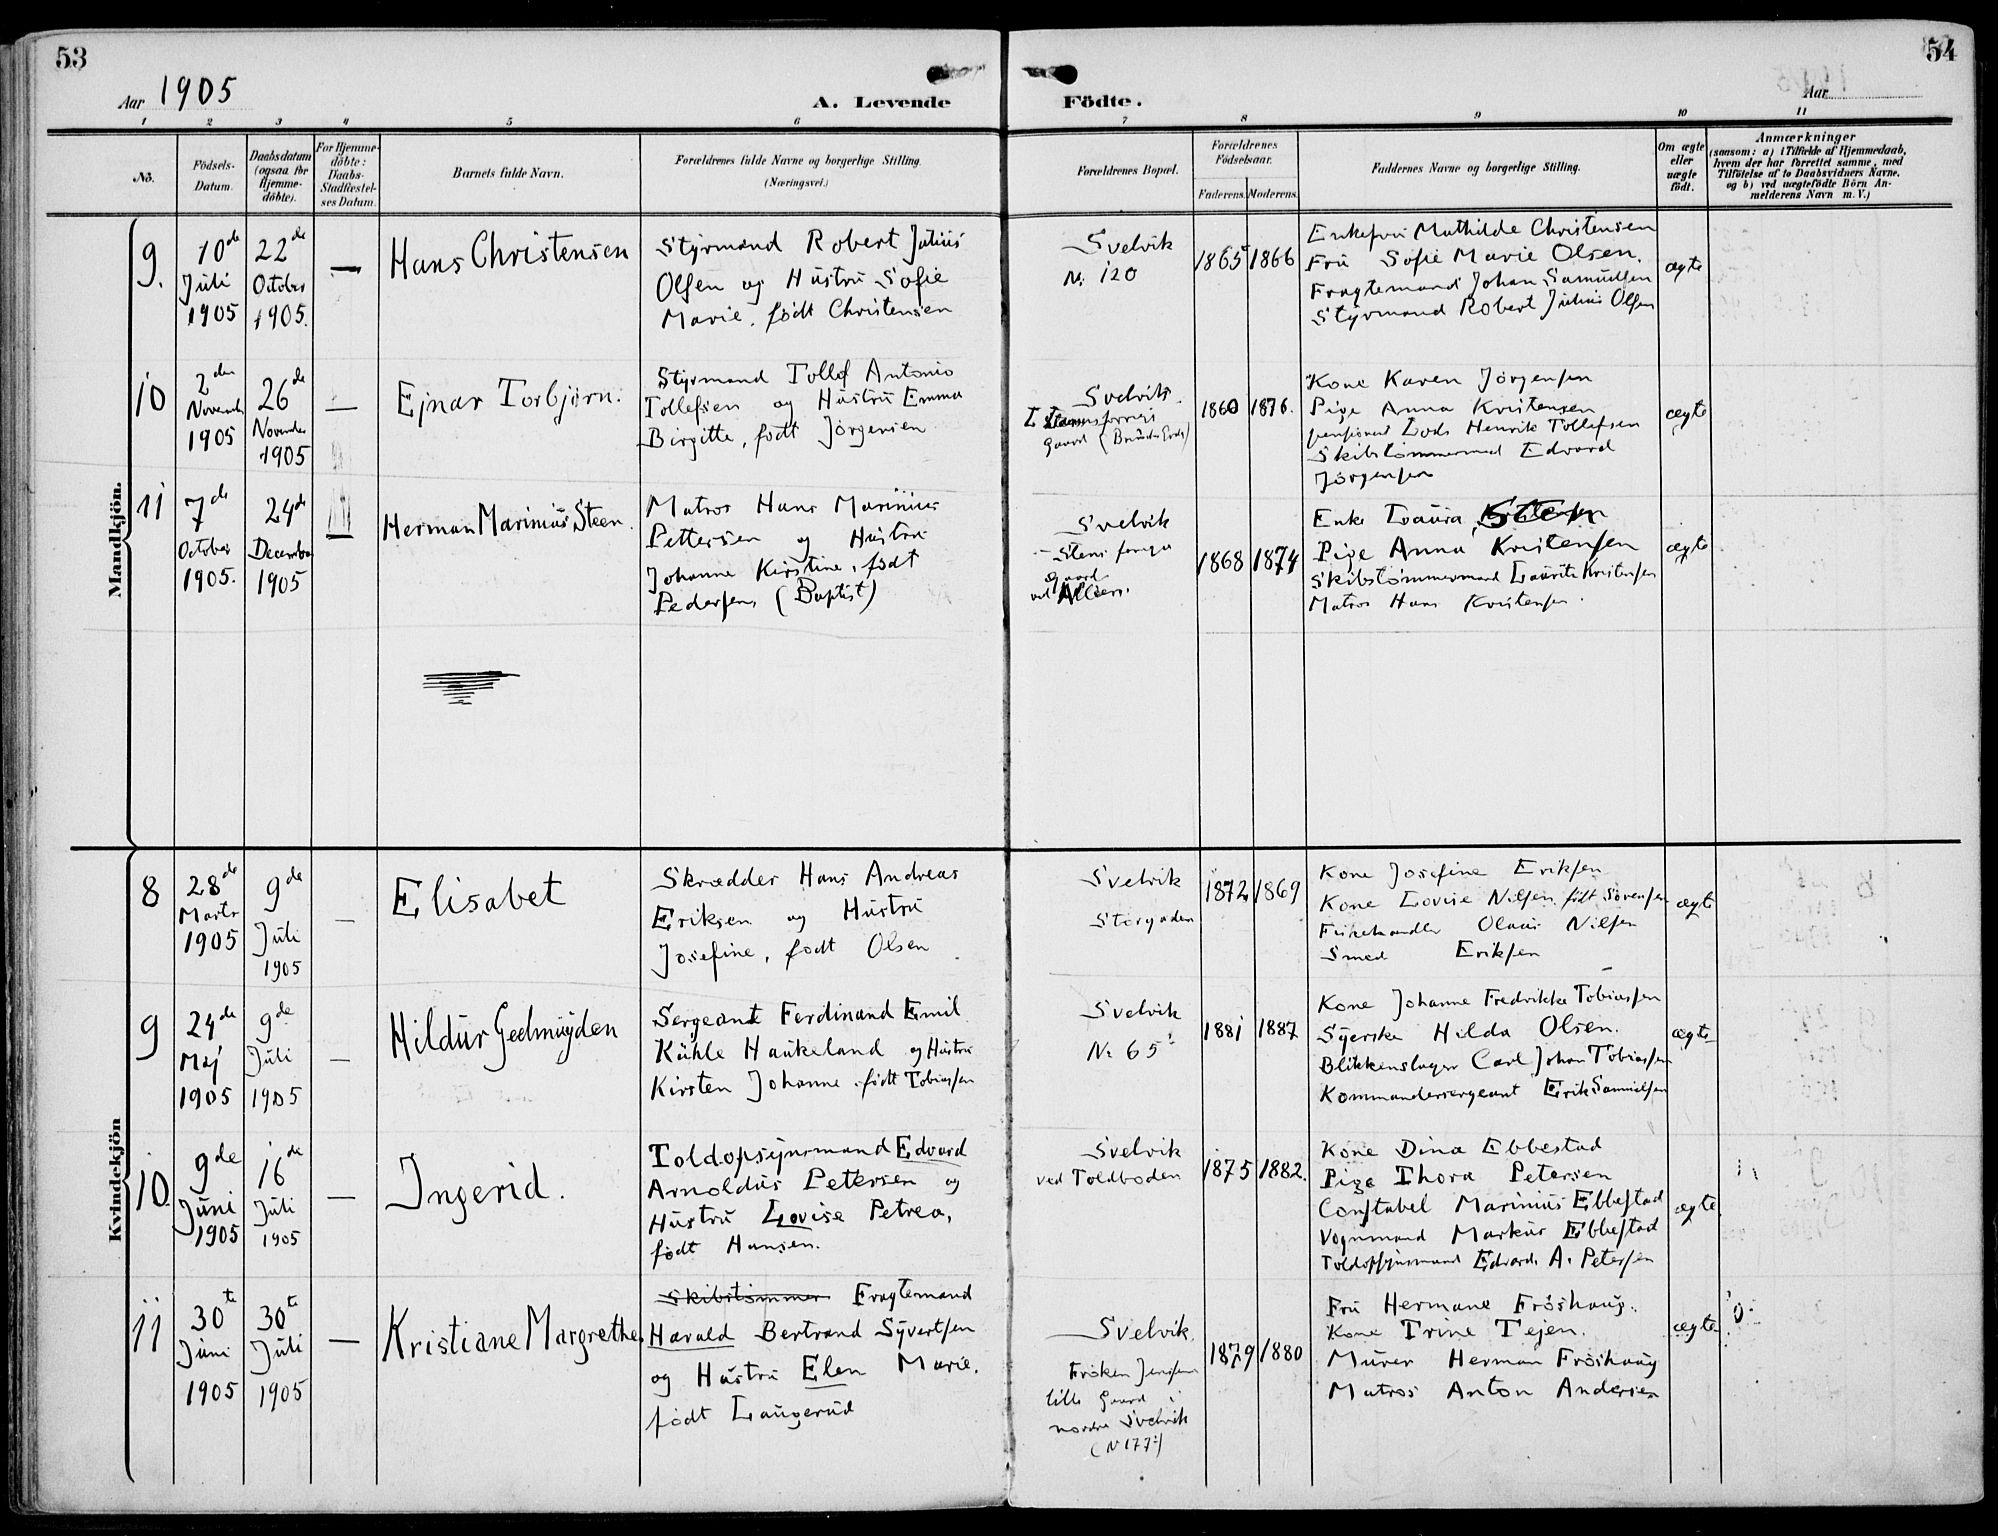 53
54
Aar 1905
A. Levende
Födte.
Aar
1 2 3 4 5 6 7 8 9 10 11
No.
Födsels-
Datum.
Daabsdatum
(ogsaa for
Hjemme-
döbte).
For Hjemme-
döbte:
Daabs-
Stadfæstel-
ses Datum.
Barnets fulde Navn.
Forældrenes fulde Navne og borgerlige Stilling.
(Næringsvei.)
Forældrenes Bopæl.
Forældrenes
Födselsaar.
Faderens. Moderens.
Faddernes Navne og borgerlige Stilling.
Om ægte
eller
uægte
födt.
Anmærkninger
(saasom: a) i Tilfælde af Hjemmedaab,
hvem der har forrettet samme, med
Tilföielse af to Daabsvidners Navne,
og b) ved uægtefödte Börn An-
melderens Navn m. V.)
Mandkjön.
9.
10de
Juli
1905
22de
October
1905.
—
Hans Christensen
Styrmand Robert Julius
Olsen og Hustru Sofie
Marie, født Christensen
Svelvik
N: 120
1865 1866
Enkefru Mathilde Christensen
Fru Sofie Marie Olsen.
Fragtemand Johan Samuelsen
Styrmand Robert Julius Olsen
ægte
10
2den
Novemb
1905
26de
November
1905
—
Ejnar Torbjørn.
Styrmand Tollef Antonio
Tollefsen og Hustru Emma
Birgitte, født Jörgensen
Svelvik.
gaard
1860 1876.
Kone Karen Jörgensen
Pige Anna Kristensen
pensioneret Lods Henrik Tollefsen
Skibstömmermand Edvard
Jörgensen
ægte
11
7de
October
1905.
24de
December
1905
—
Herman Marinius Steen.
Matros Hans Marinius
Pettersen og Hustru
Johanne Kirstine, født
Pedersen, (Baptist)
Svelvik
gaard
ved Alléen.
1868 1874
Enke Laura Steen
Pige Anna Kristensen
Skibstömmermand Lauritz Kristensen
Matros Hans Kristensen.
ægte
Kvindekjön
8
28de
Marts
1905
9de
Juli
1905
—
Elisabet
Skrædder Hans Andreas
Eriksen og Hustru
Josefine, født Olsen
Svelvik
Storgaden
1872 1869
Kone Josefine Eriksen
Kone Lovise Nilsen født Sörensen
Fiskehandler Olaus Nilsen
Smed Eriksen
ægte
9
24de
Maj
1905
9de
Juli
1905
—
Hildur Gedmuyden
Sergeant Ferdinand Emil
Kühle Haukeland og Hustru
Kirsten Johanne født Tobiassen
Svelvik
N: 65
1881 1887
Kone Johanne Fredrikke Tobiassen
Syerske Hilda Olsen.
Blikkenslager Carl Johan Tobiassen
Kommandersergeant Erik Samuelsen
ægte
10
9de
Juni
1905
16de
Juli
1905
—
Ingerid.
Toldopsynsmand Edvard
Arnoldus Petersen og
Hustru Lovise Petrea,
født Hansen.
Svelvik
ved Toldboden
1875 1882.
Kone Dina Ebbestad
Pige Thora Petersen
Constabel Marinius Ebbestad
Vognmand Markus Ebbestad
Toldopsynsmand Edvard A. Petersen
ægte.
11
30te
Juni
1905
30te
Juli
1905
—
Kristiane Margrethe.
Skibstömmer Fragtemand
Harald Bertrand Syvertsen
og Hustru Elen Marie,
født Laugerud
Svelvik.
Fröken Jensen
lille Gaard
nordre Svelvik
(N 177)
1879 1880
Fru Hermane Fröshaug.
Kone Trine Tejen.
Murer Herman Fröshaug
Matros Anton Andersen
ægte